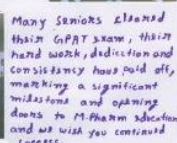 Many seniors cleared
their GPAT exam, their
hard work, dedication and
consistency have paid off,
marking a significant
milestone and opening
doors to M.Pharm education
and we wish you continued
success